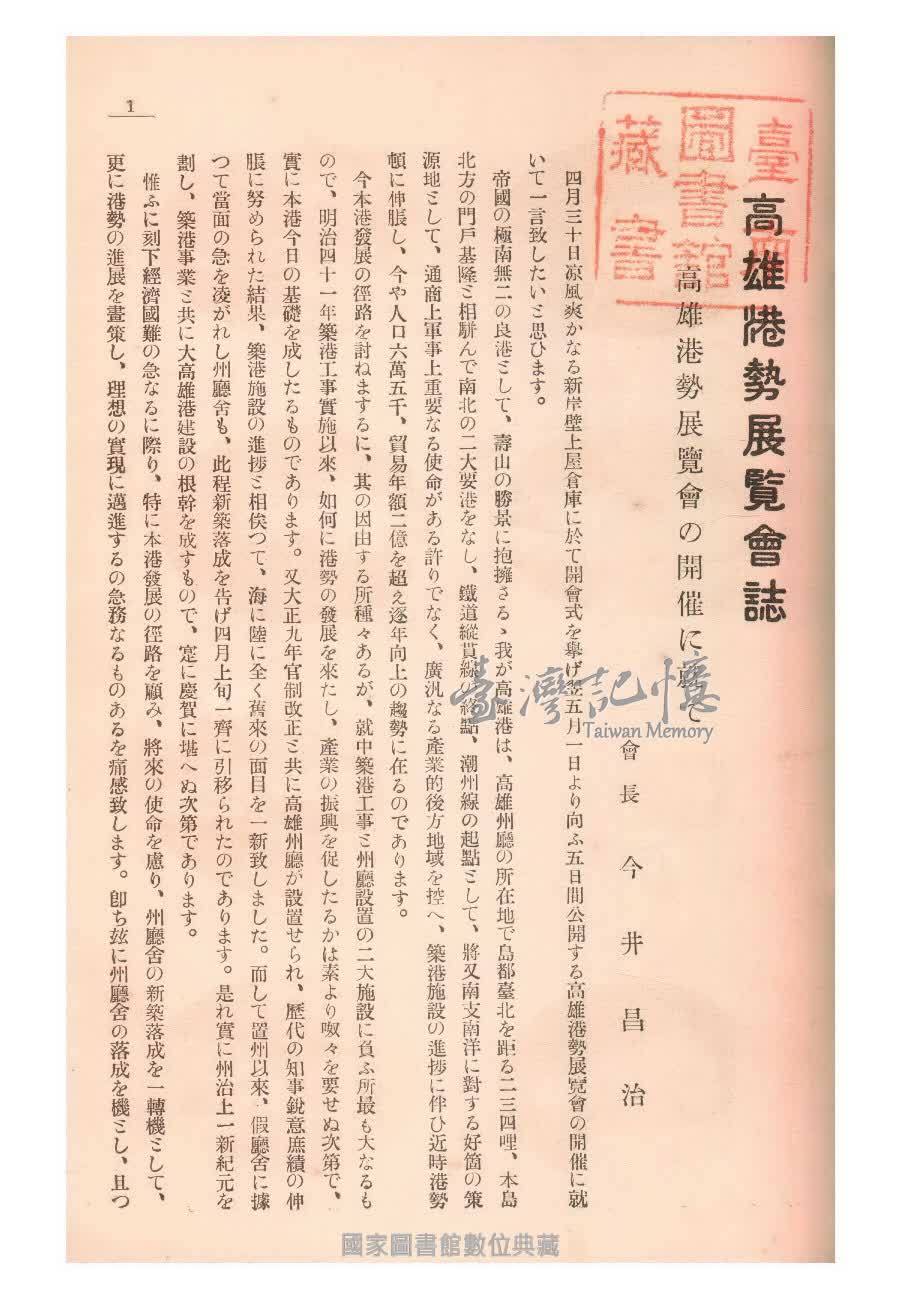 高雄港勢展覽會誌
高雄港勢展覽會の開催に就て
會長 今井昌治
四月三十日凉風爽かなる新岸壁上屋倉庫に於て開會式を擧げ翌五月一日より向ふ五日間公開する高雄港勢展覽會の開催に就
いて一言致したいと思ひます。
帝國の極南無二の良港として、壽山の勝景に抱擁さるゝ我が高雄港は、高雄州廳の所在地で島都臺北を距る二三四哩、本島
北方の門戶基隆と相駢んで南北の二大要港をなし、鐵道縱貫線の終點、潮州線の起點として、將又南支南洋に對する好箇の策
源地として、通商上軍事上重要なる使命がある許りでなく、廣汎なる產業的後方地域を控へ、築港施設の進捗に伴ひ近時港勢
頓に伸脹し、今や人口六萬五千、貿易年額二億を超え逐年向上の趨勢に在るのであります。
今本港發展の徑路を討ねまするに、其の因由する所種々あるが、就中築港工事と州廳設置の二大施設に負ふ所最も大なるも
ので、明治四十一年築港工事實施以來、如何に港勢の發展を來たし、產業の振興を促したるかは素より呶々を要せぬ次第で、
實に本港今日の基礎を成したるものであります。又大正九年官制改正と共に高雄州廳が設置せられ、歷代の知事銳意庶績の伸
脹に努められた結果、築港施設の進捗と相俟つて、海に陸に全く舊來の面目を一新致しました。而して置州以來、假廳舍に據
つて當面の急を凌がれし州廳舍も、此程新築落成を告げ四月上旬一齊に引移られたのであります。是れ實に州治上一新紀元を
劃し、築港事業と共に大高雄港建設の根幹を成すもので、寔に慶賀に堪へぬ次第であります。
惟ふに刻下經濟國難の急なるに際り、特に本港發展の徑路を顧み、將來の使命を慮り、州廳舍の新築落成を一轉機として、
更に港勢の進展を畫策し、理想の實現に邁進するの急務なるものあるを痛感致します。卽ち玆に州廳舍の落成を機とし、且つ
1
臺灣
圖書館
藏書
臺灣記憶
Taiwan Memory
國家圖書館數位典藏